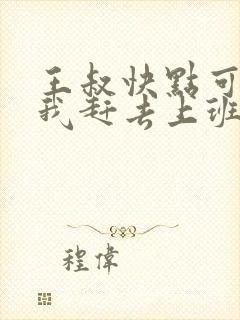 王叔快點可
我赶去上班
程偉